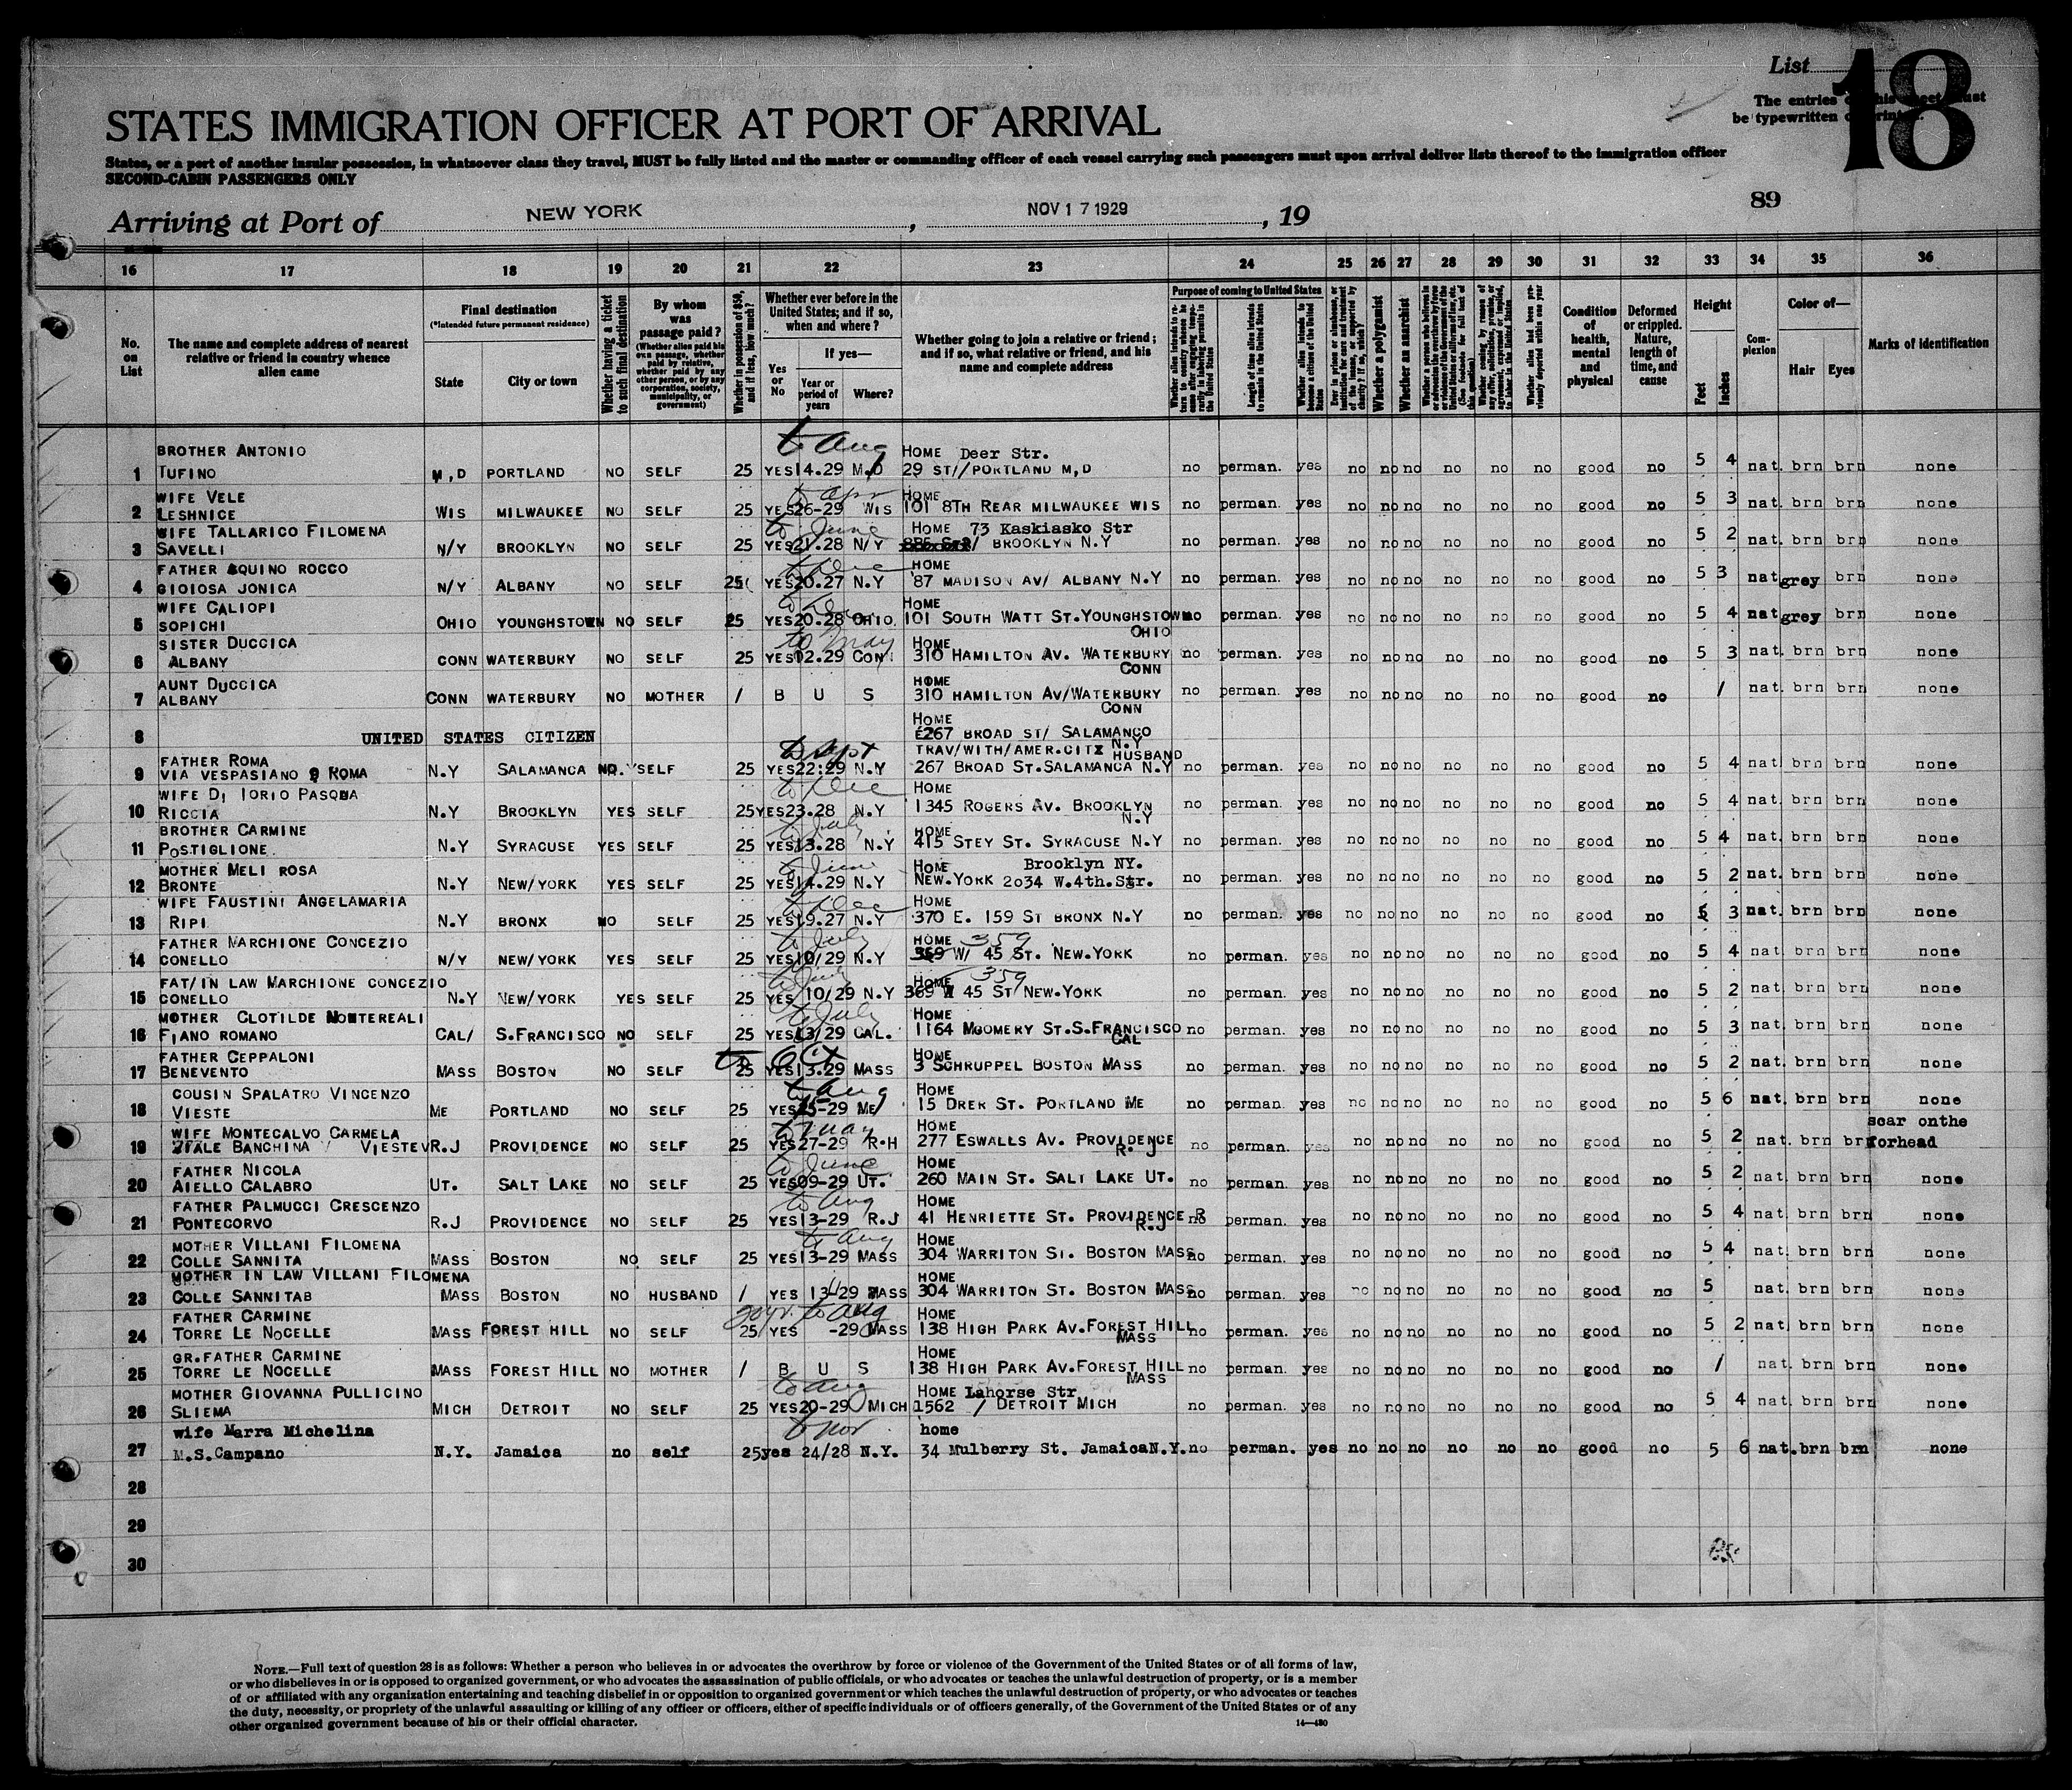 List
18
The entries on this sheet must
be typewritten or printed.
STATES IMMIGRATION OFFICER AT PORT OF ARRIVAL
States, or a port of another insular possession, in whatsoever class they travel, MUST be fully listed and the master or commanding officer of each vessel carrying such passengers must upon arrival deliver lists thereof to the immigration officer
SECOND-CABIN PASSENGERS ONLY
89
Arriving at Port of NEW YORK, NOV 17 1929, 19
16 17 18 19 20 21 22 23 24 25 26 27 28 29 30 31 32 33 34 35 36
No. on List
The name and complete address of nearest relative or friend in country whence alien came
Final destination
(*Intended future permanent residence)
State
City or town
Whether having a ticket to such final destination
By whom was passage paid?
(Whether alien paid his own passage, whether paid by relative, whether paid by any other person, or by any corporation, society, municipality, or government)
Whether in possession of $50, and if less, how much?
Whether ever before in the United States; and if so, when and where?
Yes or No
If yes—
Year or period of years
Where?
Whether going to join a relative or friend; and if so, what relative or friend, and his name and complete address
Purpose of coming to United States
Length of time alien intends to remain in the United States
Whether alien intends to become a citizen of the United States
Whether a polygamist
Whether an anarchist
Condition of health, mental and physical
Deformed or crippled. Nature, length of time, and cause
Height
Feet
Inches
Complexion
Color of—
Hair
Eyes
Marks of identification
BROTHER ANTONIO to Aug HOME Deer Str.
1 TUFINO M,D PORTLAND NO SELF 25 YES 14.29 M,D 29 ST// PORTLAND M,D no perman. yes no no no no no no good no 5 4 nat. brn brn none
WIFE VELE to apr HOME
2 LESHNICE WIS MILWAUKEE NO SELF 25 YES 26-29 WIS 101 8TH REAR MILWAUKEE WIS no perman. yes no no no no no no good no 5 3 nat. brn brn none
WIFE TALLARICO FILOMENA to June HOME 73 Kaskiasko Str
3 SAVELLI N/Y BROOKLYN NO SELF 25 YES 21.28 N/Y / BROOKLYN N.Y no perman. yes no no no no no no good no 5 2 nat. brn brn none
FATHER AQUINO ROCCO to Dec HOME
4 GIOIOSA JONICA N/Y ALBANY NO SELF 25( YES 20.27 N.Y 87 MADISON AV/ ALBANY N.Y no perman. yes no no no no no no good no 5 3 nat grey brn none
WIFE CALIOPI HOME
5 SOPICHI OHIO YOUNGHSTOWN NO SELF 25 YES 20.28 OHIO. 101 SOUTH WATT ST.YOUNGHSTOWN no perman. yes no no no no no no good no 5 4 nat grey brn none
OHIO
SISTER DUCCICA to May HOME
6 ALBANY CONN WATERBURY NO SELF 25 YES 12.29 CON. 310 HAMILTON AV. WATERBURY no perman. yes no no no no no no good no 5 3 nat. brn brn none
CONN
AUNT DUCCICA HOME
7 ALBANY CONN WATERBURY NO MOTHER / B U S 310 HAMILTON AV/WATERBURY no perman. yes no no no no no no good no / nat. brn brn none
CONN
HOME
8 UNITED STATES CITIZEN E267 BROAD ST/ SALAMANCO
N.Y
FATHER ROMA to Sept TRAV/WITH/AMER.CITZ HUSBAND
9 VIA VESPASIANO 9 ROMA N.Y SALAMANCA NO. SELF 25 YES 22:29 N.Y 267 BROAD ST.SALAMANCA N.Y no perman. yes no no no no no no good no 5 4 nat brn brn none
WIFE DI IORIO PASQUA to Dec HOME
10 RICCIA N.Y BROOKLYN YES SELF 25 YES 23.28 N.Y 1345 ROGERS AV. BROOKLYN no perman. yes no no no no no no good no 5 4 nat. brn brn none
N.Y
BROTHER CARMINE to July HOME
11 POSTIGLIONE N.Y SYRACUSE YES SELF 25 YES 13.28 N.Y 415 STEY ST. SYRACUSE N.Y no perman. yes no no no no no no good no 5 4 nat. brn brn none
MOTHER MELI ROSA to June HOME Brooklyn NY.
12 BRONTE N.Y NEW/YORK YES SELF 25 YES 14.29 N.Y NEW.YORK 2034 W.4th.Str. no perman. yes no no no no no no good no 5 2 nat. brn brn none
WIFE FAUSTINI ANGELAMARIA to Dec HOME
13 RIPI N.Y BRONX NO SELF 25 YES 19.27 N.Y 370 E. 159 ST BRONX N.Y no perman. yes no no no no no no good no 5 3 nat. brn brn none
FATHER MARCHIONE CONCEZIO to July HOME 359
14 CONELLO N/Y NEW/YORK YES SELF 25 YES 10/29 N.Y 369 W/ 45 ST. NEW.YORK no perman. yes no no no no no no good no 5 4 nat. brn brn none
FAT/IN LAW MARCHIONE CONCEZIO to July HOME 359
15 CONELLO N.Y NEW/YORK YES SELF 25 YES 10/29 N.Y 369 W 45 ST NEW.YORK no perman. yes no no no no no no good no 5 2 nat. brn brn none
MOTHER CLOTILDE MONTEREALI to July HOME
16 FIANO ROMANO CAL/ S.FRANCISCO NO SELF 25 YES 13/29 CAL. 1164 MGOMERY ST.S.FRANCISCO no perman. yes no no no no no no good no 5 3 nat. brn brn none
CAL
FATHER CEPPALONI to Oct HOME
17 BENEVENTO MASS BOSTON NO SELF 25 YES 13.29 MASS 3 SCHRUPPEL BOSTON MASS no perman. yes no no no no no no good no 5 2 nat. brn brn none
COUSIN SPALATRO VINCENZO to Aug HOME
18 VIESTE ME PORTLAND NO SELF 25 YES 25-29 ME 15 DRER ST. PORTLAND ME no perman. yes no no no no no no good no 5 6 nat. brn brn none
WIFE MONTECALVO CARMELA to May HOME scar onthe
19 VIALE BANCHINA VIESTEV R.J PROVIDENCE NO SELF 25 YES 27-29 R.H 277 ESWALLS AV. PROVIDENCE no perman. yes no no no no no no good no 5 2 nat. brn brn forhead
R.J
FATHER NICOLA to June HOME
20 AIELLO CALABRO UT. SALT LAKE NO SELF 25 YES 09-29 UT. 260 MAIN ST. SALT LAKE UT. no perman. yes no no no no no no good no 5 2 nat. brn brn none
FATHER PALMUCCI CRESCENZO to Aug HOME
21 PONTECORVO R.J PROVIDENCE NO SELF 25 YES 13-29 R.J 41 HENRIETTE ST. PROVIDENCE R no perman. yes no no no no no no good no 5 4 nat. brn brn none
R.J
MOTHER VILLANI FILOMENA to Aug HOME
22 COLLE SANNITA MASS BOSTON NO SELF 25 YES 13-29 MASS 304 WARRITON ST. BOSTON MASS no perman. yes no no no no no no good no 5 4 nat. brn brn none
MOTHER IN LAW VILLANI FILOMENA HOME
23 COLLE SANNITAB MASS BOSTON NO HUSBAND / YES 13-29 MASS 304 WARRITON ST. BOSTON MASS no perman. yes no no no no no no good no 5 nat. brn brn none
FATHER CARMINE 20yr. to Aug HOME
24 TORRE LE NOCELLE MASS FOREST HILL NO SELF 25 YES -29 MASS 138 HIGH PARK AV.FOREST HILL no perman. yes no no no no no no good no 5 2 nat. brn brn none
MASS
GR.FATHER CARMINE HOME
25 TORRE LE NOCELLE MASS FOREST HILL NO MOTHER / B U S 138 HIGH PARK AV.FOREST HILL no perman. yes no no no no no no good no / nat. brn brn none
MASS
MOTHER GIOVANNA PULLICINO to Aug HOME Lahorse Str
26 SLIEMA MICH DETROIT NO SELF 25 YES 20-29 MICH 1562 / DETROIT MICH no perman. yes no no no no no no good no 5 4 nat. brn brn none
wife Marra Michelina to nov home
27 M.S.Campano N.Y. Jamaica no self 25 yes 24/28 N.Y. 34 Mulberry St. Jamaica N.Y. no perman. yes no no no no no no good no 5 6 nat. brn brn none
28
29
30
NOTE.—Full text of question 28 is as follows: Whether a person who believes in or advocates the overthrow by force or violence of the Government of the United States or of all forms of law,
or who disbelieves in or is opposed to organized government, or who advocates the assassination of public officials, or who advocates or teaches the unlawful destruction of property, or is a member
of or affiliated with any organization entertaining and teaching disbelief in or opposition to organized government or which teaches the unlawful destruction of property, or who advocates or teaches
the duty, necessity, or propriety of the unlawful assaulting or killing of any officer or officers, either of specific individuals or of officers generally, of the Government of the United States or of any
other organized government because of his or their official character.
14—430